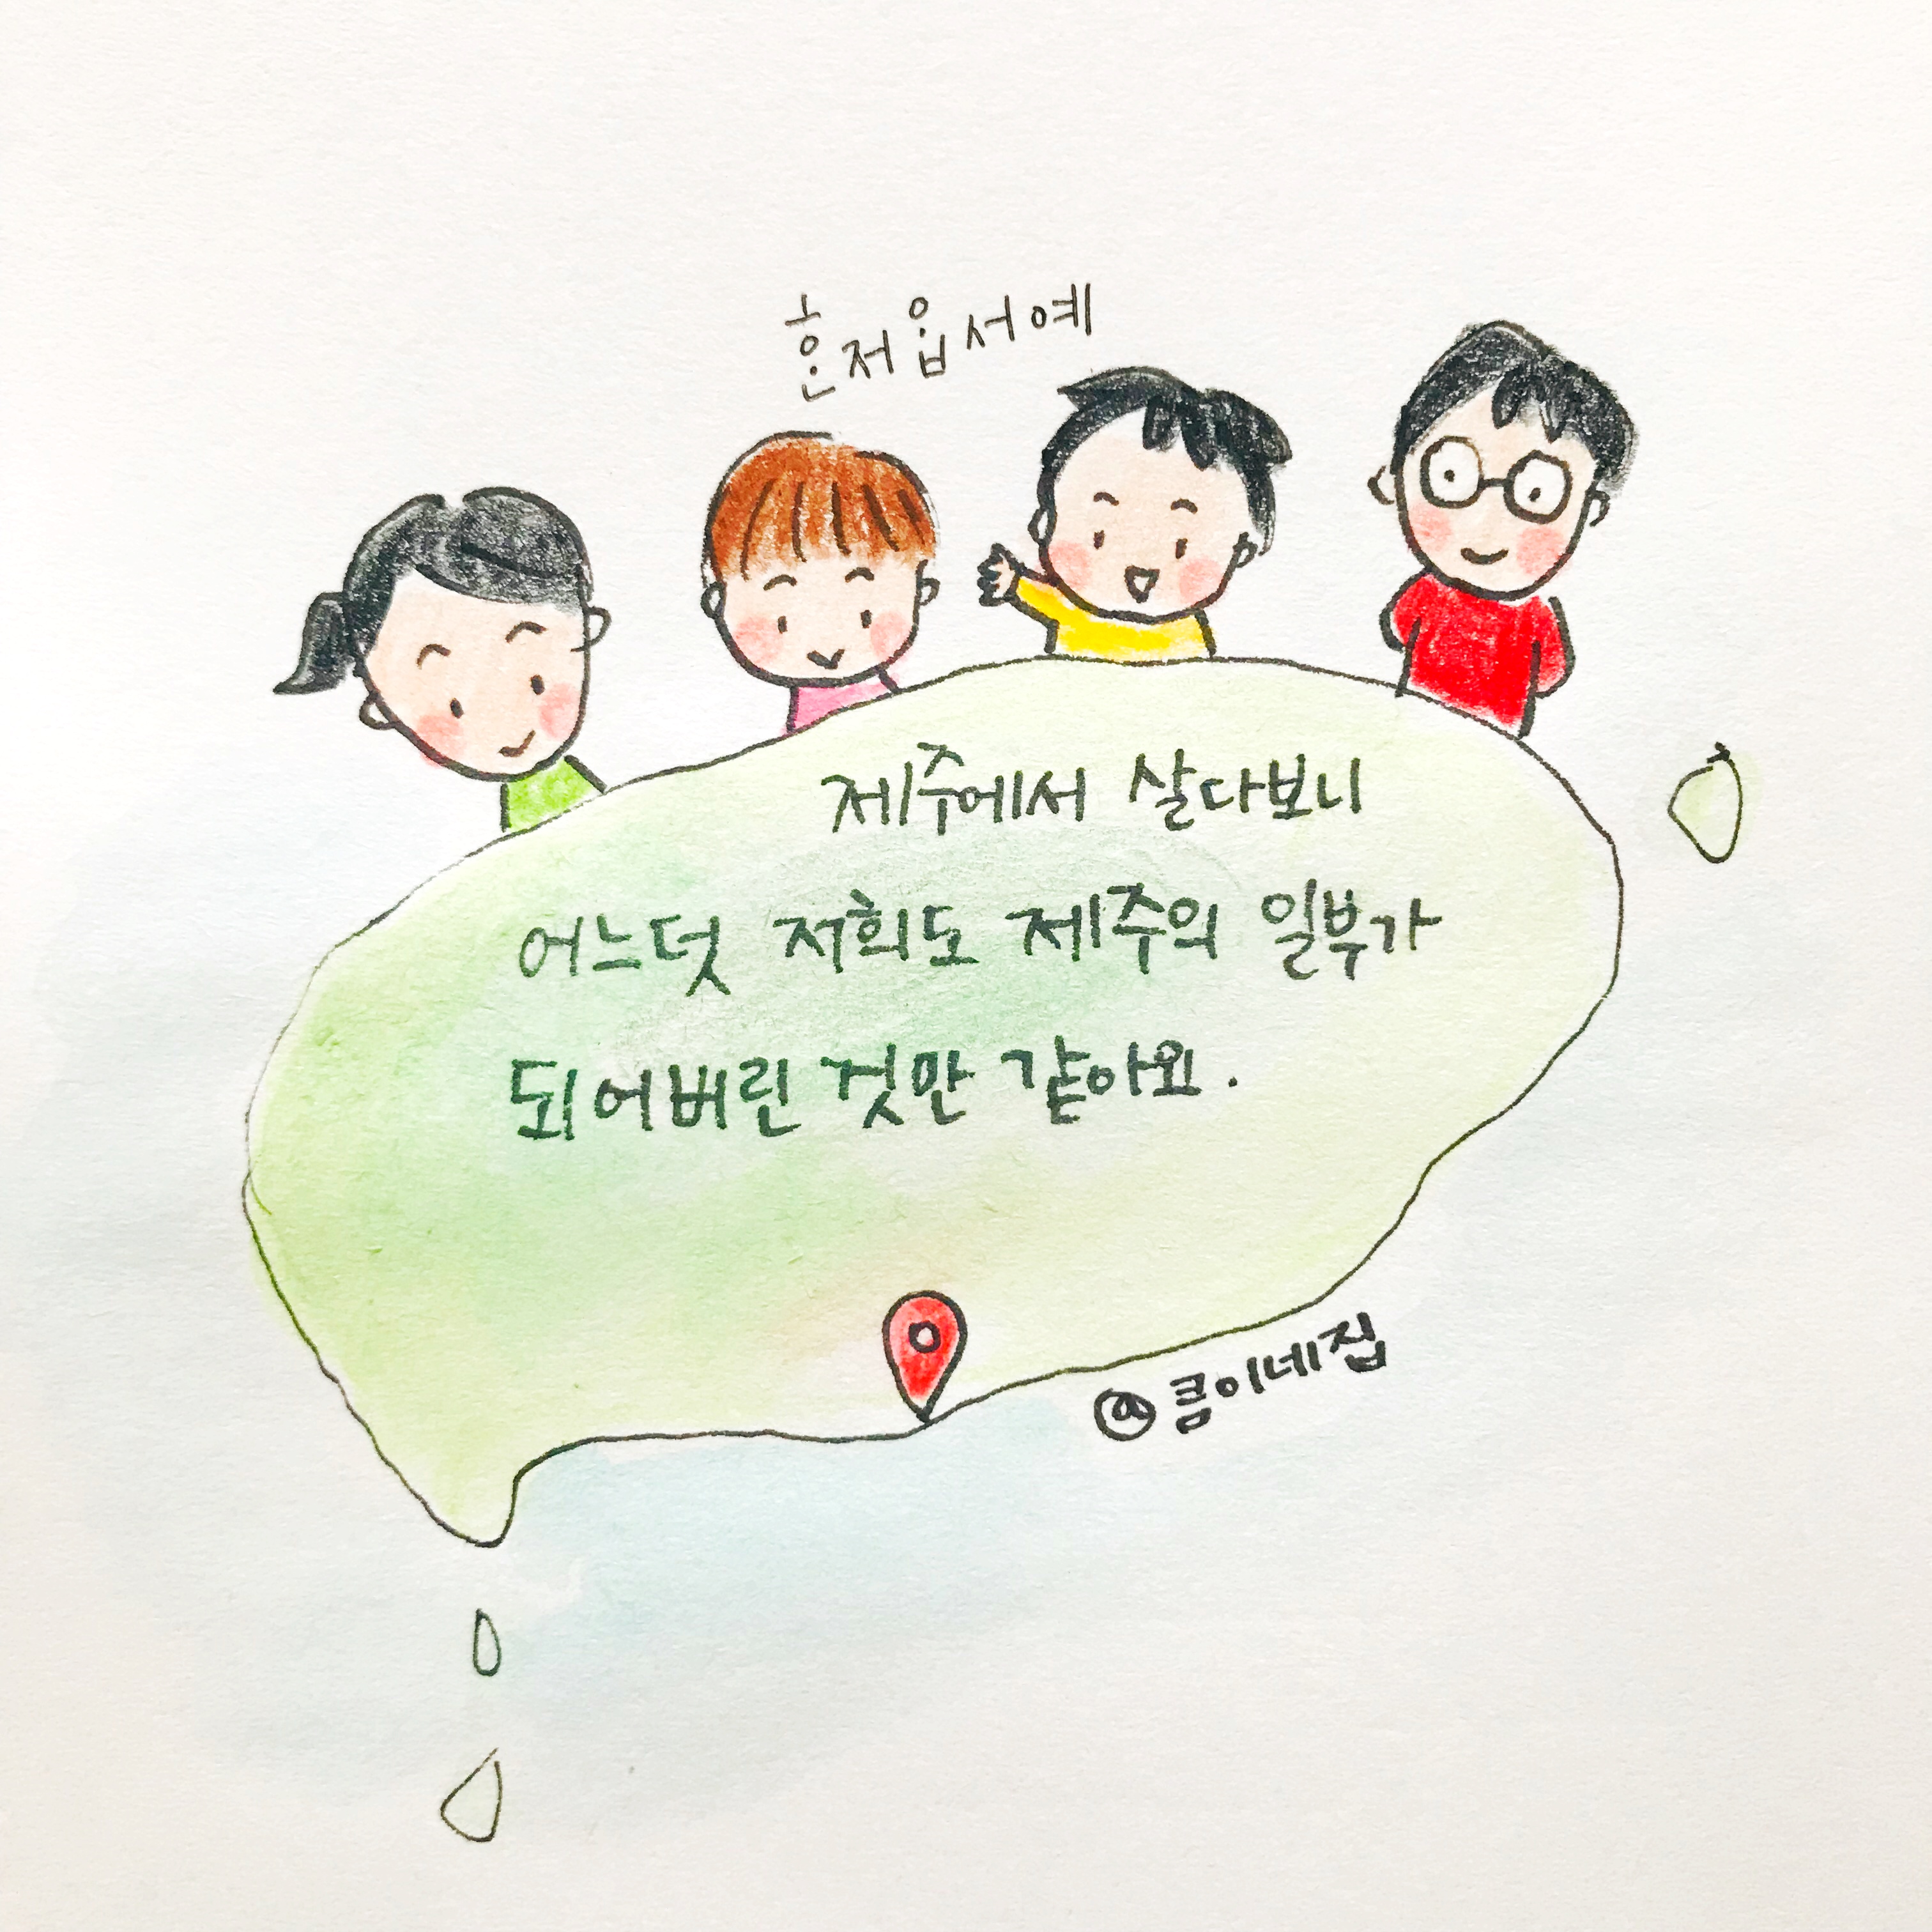 ᄒᆞᆫ저ᄋᆞᆸ서예
제주에서 살다보니
어느덧 저희도 제주의 일부가
되어버린 것만 같아요.
@콤이네집